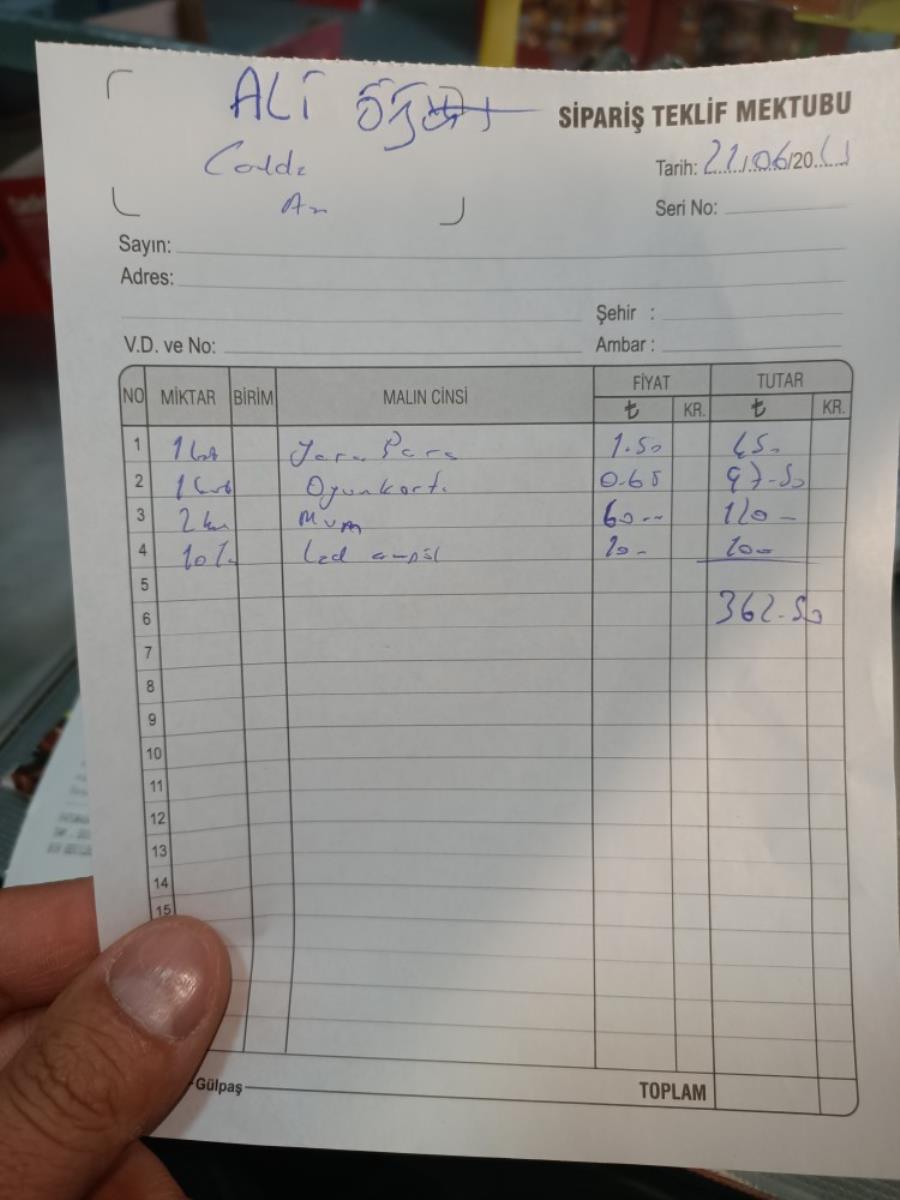 ALİ
SİPARİŞ TEKLİF MEKTUBU
Tarih: 22/06/20
Seri No:
Sayın:
Adres:
Şehir :
V.D. ve No:
Ambar :
NO MİKTAR BİRİM MALIN CİNSİ FİYAT TUTAR
₺ KR. ₺ KR.
1 1 Para 1.50 45.
2 1 Oyunkartı 0.65 97-50
3 2 Mum 60-- 120-
4 10 led ampül 20- 200-
5
6 362-50
7
8
9
10
11
12
13
14
15
Gülpaş
TOPLAM